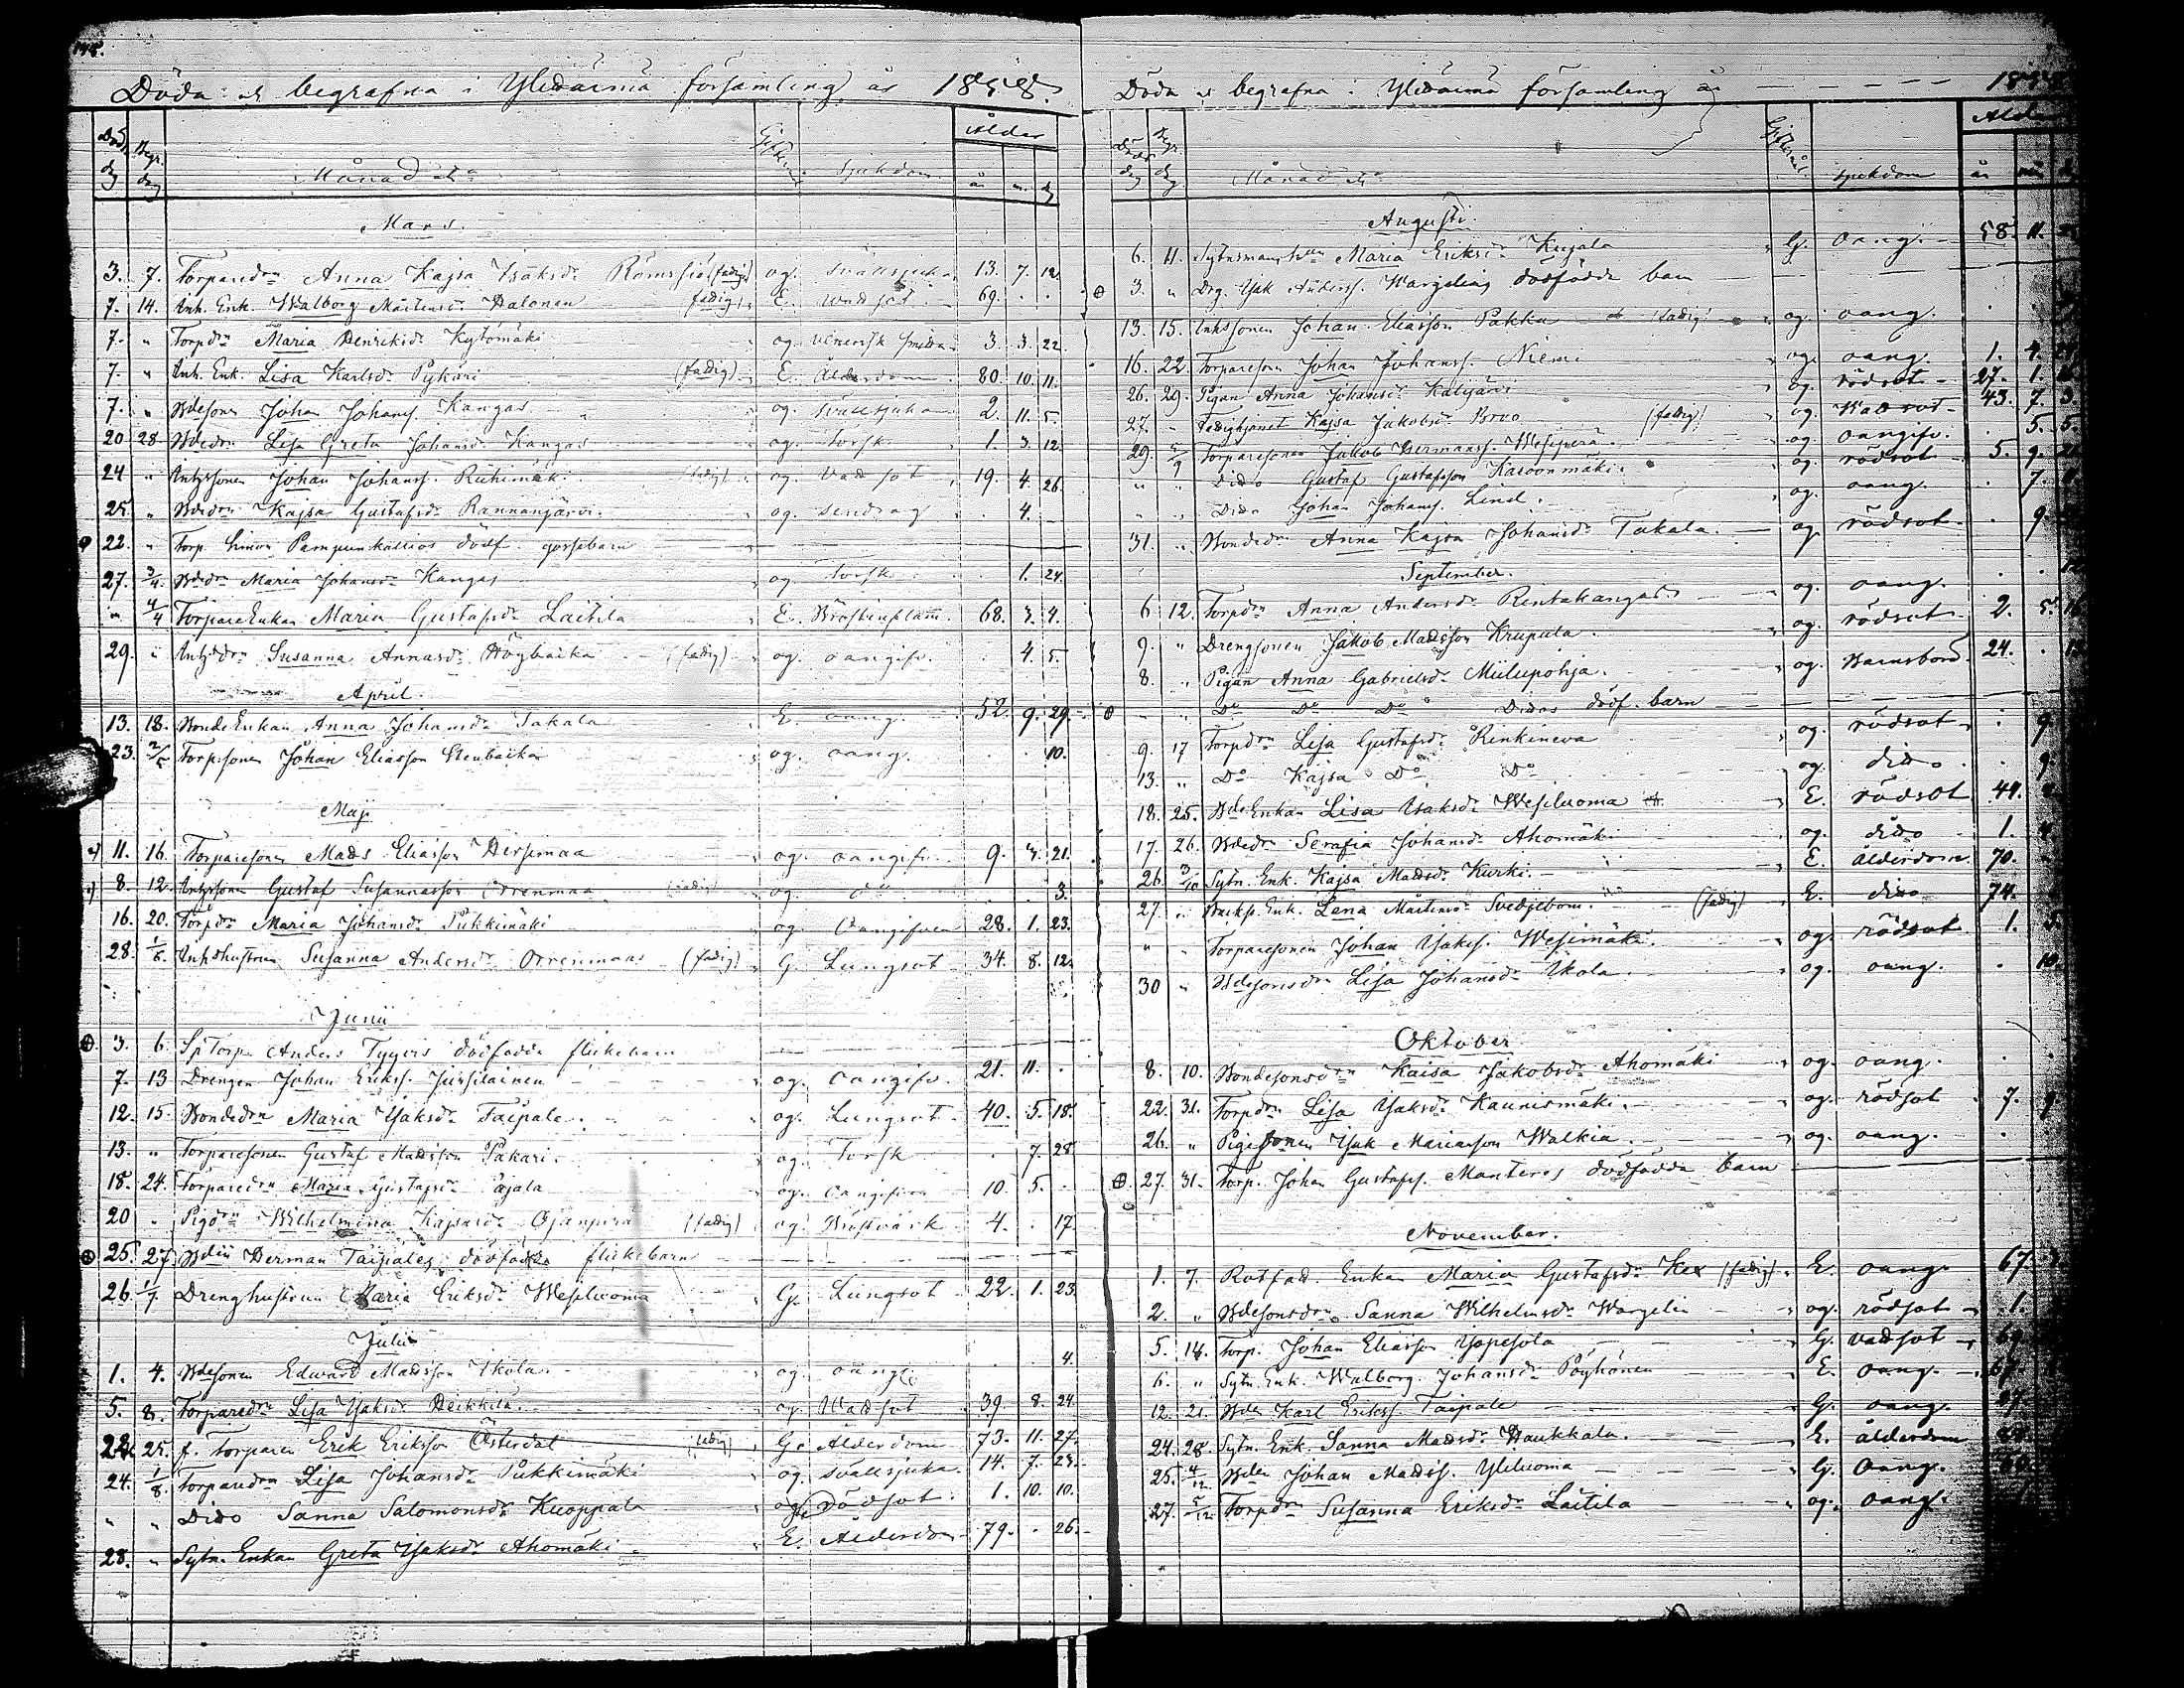 Döda & begrafna i Ylihärmä församling år 1858.
Död dag Begr. dag Månad Sjukdom Ålder år m. dag
Mars.
3. 7. Torparedrn Anna Kajsa Isaksdr (fattig) og. svullsjuka 13. 7. 12.
7. 14. Inh. Enk. Walborg Mårtensdr Halonen fattig E. 69. . .
7. " Torpdrn Maria Henriksdr Kytömäki og. venerisk smitta 3. 3. 22.
7. " Inh. Enk. Lisa Karlsdr Pykäri (fattig) E. Ålderdom 80. 10. 11.
7. " Bdesonen Johan Johans. Kangas og. svullsjuka 2. 11. 5.
20 28. Bdedrn Lisa Greta Johansdr Kangas og. torsk 1. 3. 12.
24 " Inhyssonen Johan Johanss. Riihimäki (fattig) og. Vadsot 19. 4. 26.
25. " Bdedrn Kajsa Gustafsdr Rannanjärvi og. sendrag . 4.
22. " Torp. Simon Pampunkallios dödf. gossebarn
27. 3/4 Bdedrn Maria Johansdr Kangas og. torsk . 1. 24.
" 4/4 TorpareEnkan Maria Gustafsdr Laitila E. Bröstinflam. 68. 3. 4.
29. " Inhysdrn Susanna Annasdr Högbacka (fattig) og. oangifv. . 4. 5.
April.
13. 18. BondeEnkan Anna Johansdr Takala E. oang. 52. 9. 29.
23. 2/5 Torpsonen Johan Eliasson Stenbacka og. oang. . . 10.
Maji
11. 16. Torparesonen Mads Eliasson Hersimaa og. oangifv. 9. 3. 21.
8. 12. Inhyssonen Gustaf Susannasson Orrenmaa (fattig) og. do . . 3.
16. 20. Torpdrn Maria Johansdr Pukkimäki og. Oangifven 28. 1. 23.
28. 1/6. Inhshustrun Susanna Andersdr Orrenmaa (fattig) G. Lungsot 34. 8. 12.
Junii
3. 6. SpTorp. Anders Tygers dödfödda flickebarn
7. 13 Drengen Johan Eriks. Jussilainen og. oangifv. 21. 11. .
12. 15. Bondedrn Maria Isaksdr Taipale og. Lungsot 40. 5. 18.
13. " Torparesonen Gustaf Madsson Pakari. og. Torsk . 7. 28
18. 24. Torparedrn Maria Gustafsdr Pajala og. oangifven 10. 5. .
20 " Pigdrn Wilhelmina Kajsasdr Ojanperä (fattig) og. Bröstvärk 4. . 17.
25. 27 Bden Herman Taipales dödfödda flickebarn
26. 1/7 Drenghustrun Maria Eriksdr Wesiluoma G. Lungsot 22. 1. 23.
Julii
1. 4. Bdesonen Edward Madsson Ikola og. oang. . . 4.
5. 8. Torparedrn Lisa Isaksdr Heikkilä og. Vadsot 39. 8. 24.
22. 25. f. Torparen Erik Eriksson Österdal (fattig) G. Ålderdom 73. 11. 27.
24. 1/8. Torparedrn Lisa Johansdr Pukkimäki og. svullsjuka 14. 7. 23.
" " Dido Sanna Salomonsdr Kuoppala og. rödsot 1. 10. 10.
28. " Sytn. Enkan Greta Isaksdr Ahomäki E. Ålderdom 79. . 26.
Döda & begrafna i Ylihärmä församling år 1858
Död dag Begr. dag Månad Sjukdom Ålder år mån
Augusti.
6. 11. Maria Eriksdr Kujala G. oang. 58. 11.
3. " Drg. Isak Anderss. Wargelins dödfödda barn
13. 15. Inhssonen Johan Eliasson Pakka fattig og. oang.
16. 22. Torparesonen Johan Johanss. Niemi og. oang. 1. 4.
26. 29. Pigan Anna Johansdr Kalijärvi og. rödsot 27. 1.
27. " Fattighjonet Kajsa Jakobsdr Broo (fattig) og. Vadsot 43. 7. 3.
29. 5/9 Torparesonen Jakob Hermanss. Wesiperä og. oangifv. . 5. 5.
" " Dido Gustaf Gustafsson Karoonmäki. og. rödsot 5. 9.
" " Dido Johan Johanss. Lind. og. oang. . 7.
31. " Bondedrn Anna Kajsa Johansdr Takala. og. rödsot . 9.
September.
6 12. Torpdrn Anna Andersdr Rintakangas og. oang.
9. " Drengsonen Jakob Madsson Krupula. og. rödsot 2. 5.
8. " Pigan Anna Gabrielsdr Miilupohja. og. Barnsbörd 24.
" Do Do Do Didos dödf. barn
9. 17 Torpdrn Lisa Gustafsdr Rinkineva og. rödsot . 9
13. " Do Kajsa Do Do og. dido . 9
18. 25. BdeEnkan Lisa Isaksdr Wesiluoma E. rödsot 44.
17. 26. Bdedrn Serafia Johansdr Ahomäki og. dido 1. 4.
26. 3/10 Sytn. Enk. Kajsa Madsdr Kurki. E. ålderdom 70.
27. " Backst. Enk. Lena Mårtensdr Svedjebom. (fattig) E. dido 74.
" " Torparesonen Johan Isakss. Wesimäki. og. rödsot 1.
30 " Bdesonsdrn Lisa Johansdr Ikola. og. oang. . 10.
Oktober
8. 10. Bondesonsdrn Kaisa Jakobsdr Ahomäki og. oang.
22. 31. Torpdrn Lisa Isaksdr Kaunismäki. og. rödsot 7. 9
26. " Pigesonen Isak Mariasson Walkia. og. oang.
27. 31. Torp. Johan Gustafss. Manteres dödfödda barn
November.
1. 7. Rotfad. Enkan Maria Gustafsdr Kex (fattig) E. oang. 67.
2. " Bdesonsdrn Sanna Wilhelmsdr Wargelin og. rödsot 1.
5. 14. Torp. Johan Eliasson Yopesola G. vadsot 69
6. " Sytn. Enk. Walborg Johansdr Pöyhönen E. oang.
12. 21. Bden Karl Erikss Taipale G. oang.
24. 28. Sytn. Enk. Sanna Madsdr Haukkala. E. ålderdom
25. 4/12. Bden Johan Madss. Yliluoma G. Oang.
27. 5/12 Torpdrn Susanna Eriksdr Laitila og. oang.